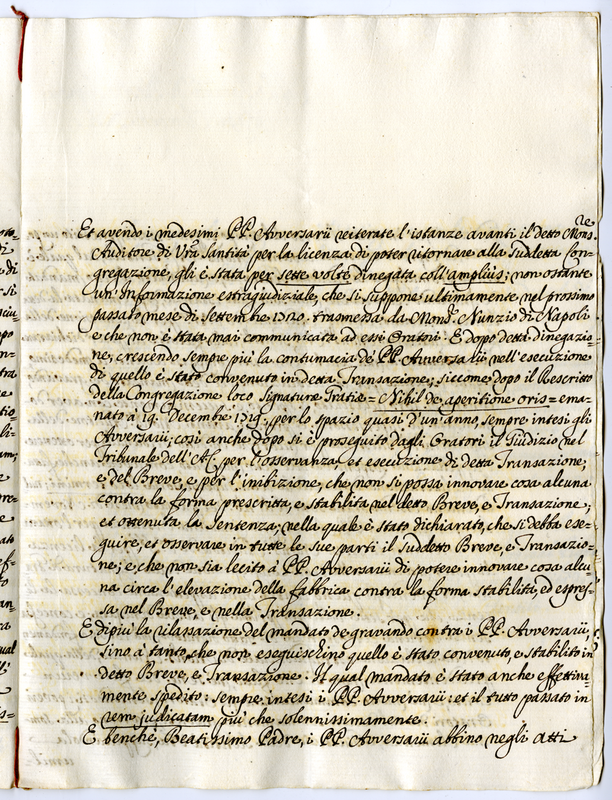 Et avendo i medesimi PP. Avversarii reiterate l'istanze avanti il detto Mons.re
Auditore di V̄ra Santità per la licenza di poter ritornare alla Suddetta Con-
gregazione, gli è stata per sette volte dinegata coll'amplius; non ostante
un'Informazione estragiudiziale, che si suppone ultimamente nel prossimo
passato mese di Settembre 1720. trasmessa da Mons.r Nunzio di Napoli
e che non è stata mai communicata ad essi Oratori. E dopo detta dinegazio-
ne, crescendo sempre più la contumacia de PP. Avversarii nell'esecuzione
di quello è stato convenuto in detta Transazione; siccome dopo il Rescritto
della Congregazione loco Signaturæ Gratiæ = Nihil de aperitione oris = ema-
nato à 19. Decembre 1719. per lo spazio quasi d'un'anno, sempre intesi gli
Avversarii, così anche dopo si è proseguito dagli Oratori il Giudizio nel
Tribunale dell'A.C. per l'osservanza, et esecuzione di detta Transazione;
e del Breve, e per l'inibizione, che non si possa innovare cosa alcuna
contra la forma prescritta, e stabilita nel detto Breve, e Transazione;
et ottenuta la Sentenza, nella quale è stato dichiarato, che si debba ese-
guire, et osservare in tutte le sue parti il suddetto Breve, e Transazio-
ne; e che non sia lecito à PP. Avversarii di potere innovare cosa alcu-
na circa l'elevazione della fabbrica contra la forma stabilita, ed espres-
sa nel Breve, e nella Transazione.
E dipiù la rilassazione del mandato de gravando contra i PP. Avversarii,
sino à tanto, che non eseguischino quello è stato convenuto, e stabilito in
detto Breve, e Transazione. Il qual mandato è stato anche effettiva
mente spedito: sempre intesi i PP. Avversarii: et il tutto passato in
rem judicatam più che solennissimamente.
E benche, Beatissimo Padre, i PP. Avversarii abbino negli atti